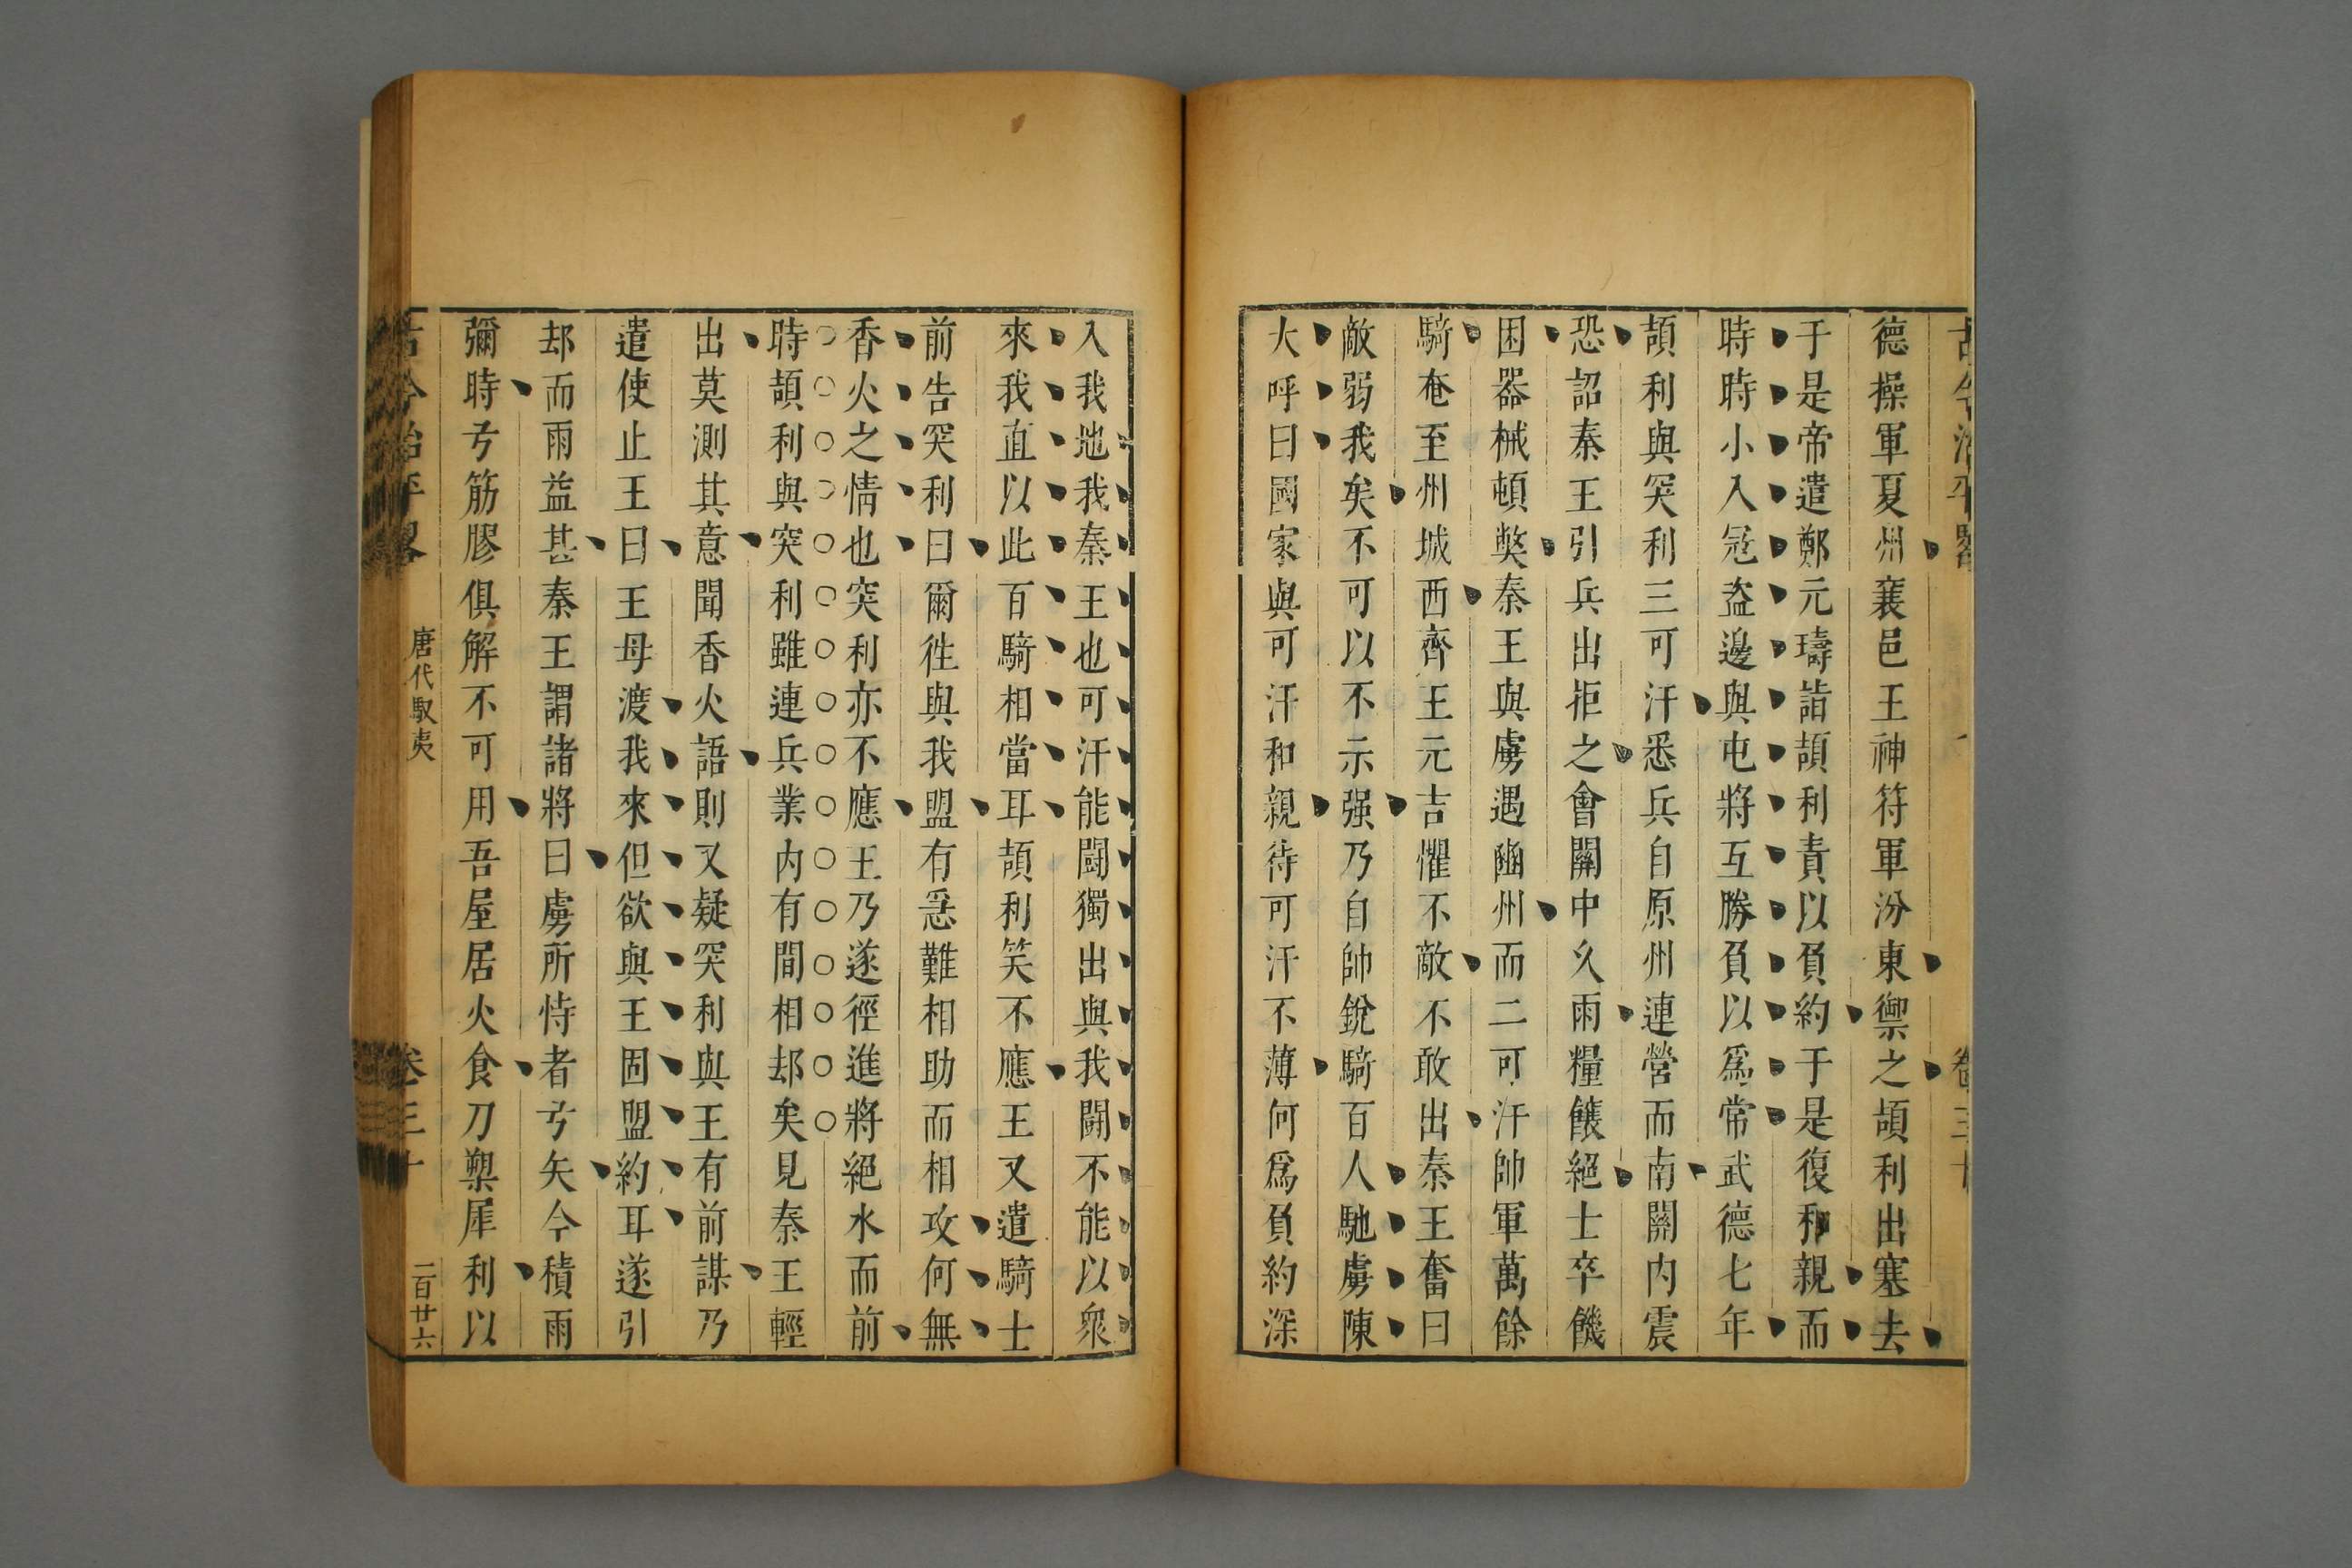 德操軍夏州襄邑王神符軍汾東禦之頡利出塞去
于是帝遣鄭元璹詣頡利責以負約于是復和親而
時時小入冦盗邊與屯將互勝負以爲常武德七年
頡利與突利三可汗悉兵自原州連營而南關内震
恐詔秦王引兵出拒之會關中久雨糧餽絕士卒饑
困器械頓獘秦王與虜遇豳州而二可汗帥軍萬餘
騎奄至州城西齊王元吉懼不敵不敢出秦王奮曰
敵弱我矣不可以不示强乃自帥銳騎百人馳虜陳
大呼曰國家與可汗和親待可汗不薄何爲負約深
入我地我秦王也可汗能鬪獨出與我鬪不能以衆
來我直以此百騎相當耳頡利笑不應王又遣騎士
前告突利曰爾徃與我盟有急難相助而相攻何無
香火之情也突利亦不應王乃遂徑進將絕水而前
時頡利與突利雖連兵業内有間相却矣見秦王輕
出莫測其意聞香火語則又疑突利與王有前謀乃
遣使止王曰王毋渡我來但欲與王固盟約耳遂引
却而雨益甚秦王謂諸將曰虜所恃者弓矢今積雨
彌時弓筋膠俱解不可用吾屋居火食刀槊犀利以
古今治平畧
唐代馭夷
卷三十
一百廿六